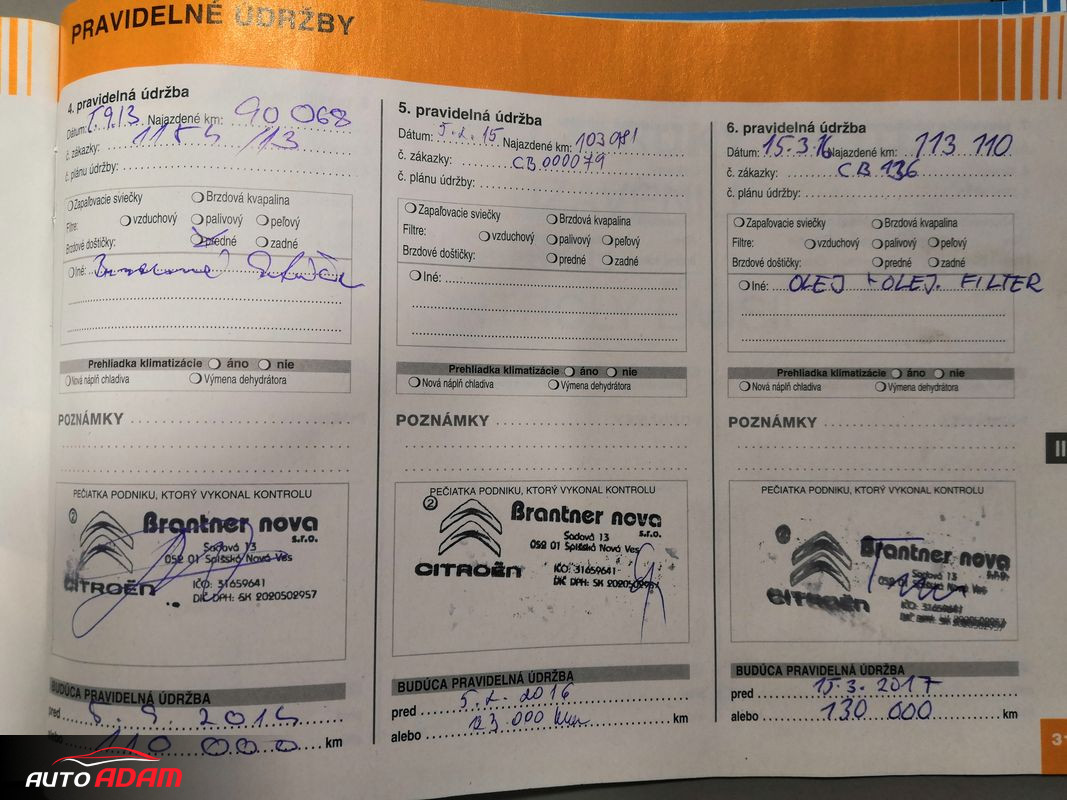 PRAVIDELNÉ ÚDRŽBY
4. pravidelná údržba
Dátum: 5.9.13 Najazdené km: 90 068
č. zákazky: /13
č. plánu údržby:
Zapaľovacie sviečky Brzdová kvapalina
Filtre: vzduchový palivový peľový
Brzdové doštičky: predné zadné
Iné:
Prehliadka klimatizácie áno nie
Nová náplň chladiva Výmena dehydrátora
POZNÁMKY
PEČIATKA PODNIKU, KTORÝ VYKONAL KONTROLU
2 Brantner nova
s.r.o.
Sadová 13
052 01 Spišská Nová Ves
CITROËN
IČO: 31659641
DIČ DPH: SK 2020502957
BUDÚCA PRAVIDELNÁ ÚDRŽBA
pred 5. 9. 2014
alebo 110 000 km
5. pravidelná údržba
Dátum: 5.2.15 Najazdené km: 103981
č. zákazky: CB 000079
č. plánu údržby:
Zapaľovacie sviečky Brzdová kvapalina
Filtre: vzduchový palivový peľový
Brzdové doštičky: predné zadné
Iné:
Prehliadka klimatizácie áno nie
Nová náplň chladiva Výmena dehydrátora
POZNÁMKY
PEČIATKA PODNIKU, KTORÝ VYKONAL KONTROLU
2 Brantner nova
s.r.o.
Sadová 13
052 01 Spišská Nová Ves
CITROËN
IČO: 31659641
DIČ DPH: SK 2020502957
BUDÚCA PRAVIDELNÁ ÚDRŽBA
pred 5. 2. 2016
alebo 123 000 km km
6. pravidelná údržba
Dátum: 15.3.16 Najazdené km: 113 110
č. zákazky: CB 136
č. plánu údržby:
Zapaľovacie sviečky Brzdová kvapalina
Filtre: vzduchový palivový peľový
Brzdové doštičky: predné zadné
Iné: OLEJ + OLEJ. FILTER
Prehliadka klimatizácie áno nie
Nová náplň chladiva Výmena dehydrátora
POZNÁMKY
PEČIATKA PODNIKU, KTORÝ VYKONAL KONTROLU
Brantner nova
s.r.o.
Sadová 13
052 01 Spišská Nová Ves
CITROËN
IČO: 31659641
DIČ DPH: SK 2020502957
BUDÚCA PRAVIDELNÁ ÚDRŽBA
pred 15.3.2017
alebo 130 000 km
II
31
AUTO ADAM